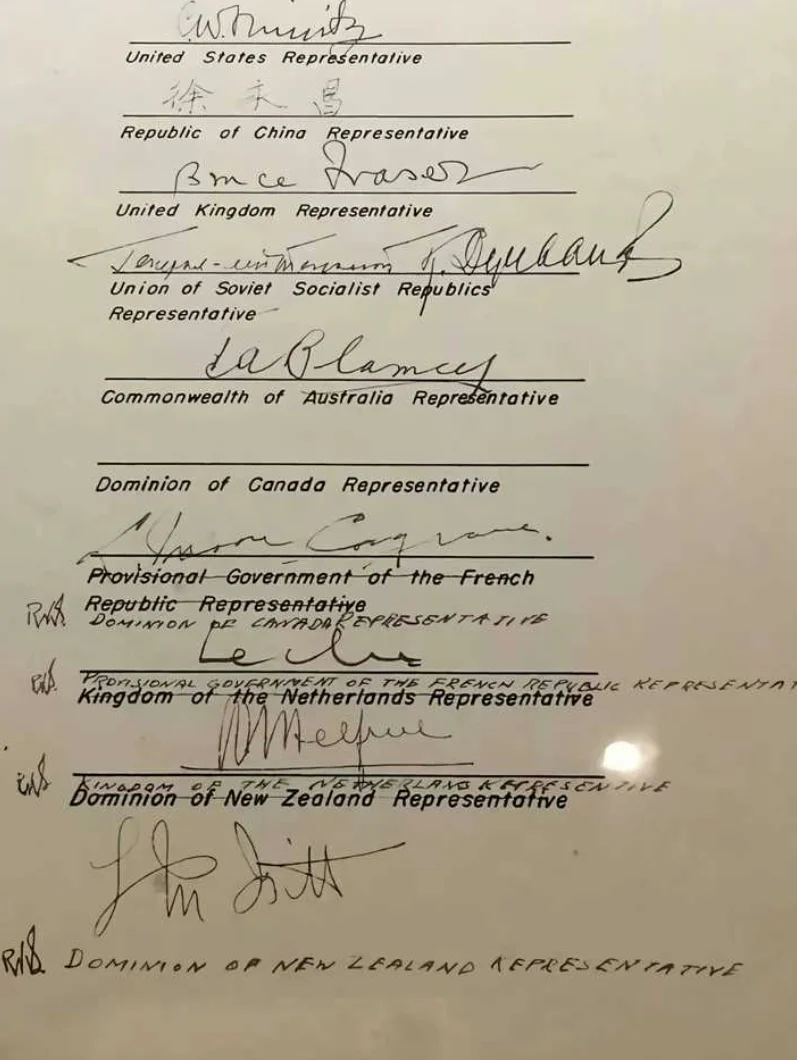 C.W. Nimitz
United States Representative
徐永昌
Republic of China Representative
Bruce Fraser
United Kingdom Representative
Union of Soviet Socialist Republics
Representative
T A Blamey
Commonwealth of Australia Representative
Dominion of Canada Representative
L Moore Cosgrave.
Provisional Government of the French
Republic Representative
RKS. DOMINION OF CANADA REPRESENTATIVE
Leclerc
RKS. PROVISIONAL GOVERNMENT OF THE FRENCH REPUBLIC REPRESENTAT
Kingdom of the Netherlands Representative
Helfrich
RKS KINGDOM OF THE NETHERLANDS REPRESENTATIVE
Dominion of New Zealand Representative
L M Isitt
RKS. DOMINION OF NEW ZEALAND REPRESENTATIVE